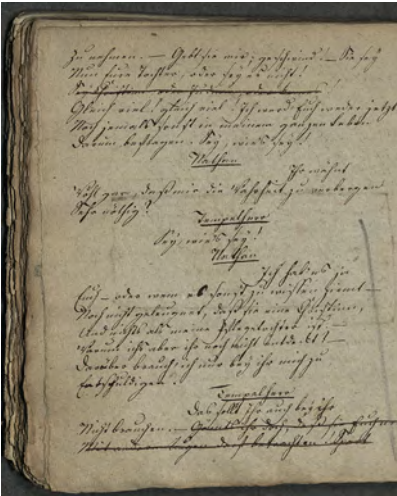 Zu nehmen. — Gebt sie mir; geschwind! — Sie sey
Nun Eure Tochter, oder sey es nicht!
Sey Christin, oder Jüdinn, oder
Gleich viel! gleich viel! Ich werd' Euch weder jetzt
Noch jemals sonst in meinem ganzen Leben
Darum befragen. Sey, wie's sey!
Nathan
Ihr wähnt
Wohl gar, daß mir die Wahrheit zu verbergen
Sehr nöthig?
Tempelherr
Sey, wie's sey!
Nathan
Ich hab' es ja
Euch — oder wem es sonst zu wissen ziemt —
Noch nicht geleugnet, daß sie eine Christinn,
Und nichts als meine Pflegetochter ist. —
Warum ich's aber ihr noch nicht entdeckt? —
Darüber brauch' ich nur bey ihr mich zu
Entschuldigen.
Tempelherr
Das sollt Ihr auch bey ihr
Nicht brauchen. — Gönnt's ihr doch, daß sie Euch nie
Mit andern Augen darf betrachten!